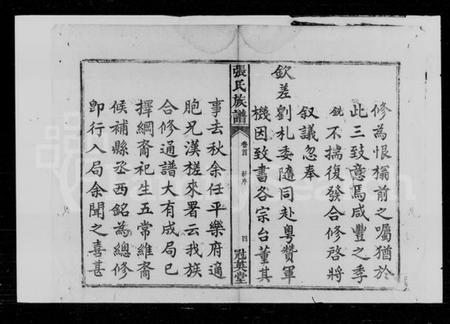 修為恨榻前之囑猶於
此三致意焉咸豐之季
銑不揣復發合修啓將
叙議忽奉
欽差劉札委隨同赴粵贊軍
機因致書各宗台董其
張氏族譜 卷首 新序 四 冠英堂
事去秋余任平樂府適
胞兄漢槎來署云我族
合修通譜大有成局已
擇綱裔祀生五常維裔
候補縣丞西銘為總修
即行入局余聞之喜甚